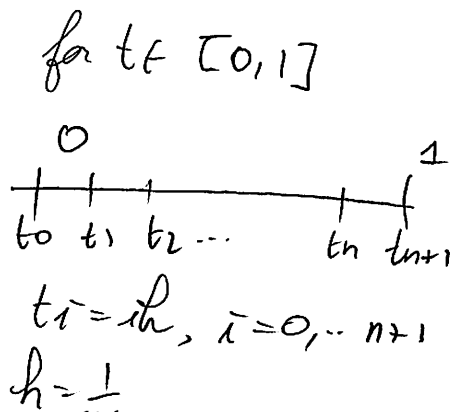 for t ∈ [0,1]
0 1
t0 t1 t2 ... tn tn+1
ti = ih, i = 0,.. n+1
h = 1